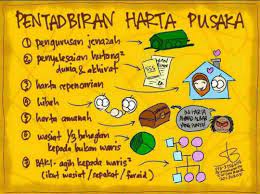 PENTADBIRAN HARTA PUSAKA
① pengurusan jenazah
② penyelesaian hutang²
dunia & akhirat
③ harta sepencarian
④ hibah
⑤ harta amanah
⑥ wasiat 1/3 bahagian
kepada bukan waris
⑦ BAKI - agih kepada waris²
(ikut wasiat / sepakat / faraid)
INI HARTA